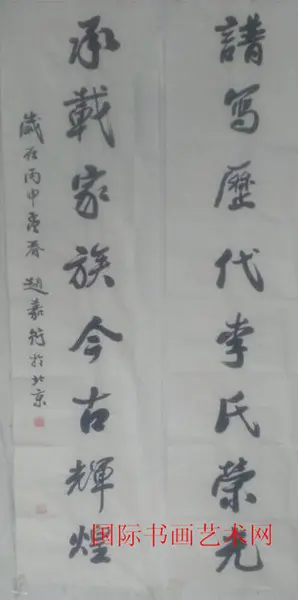 譜寫歷代李氏榮光
承載家族今古輝煌
歲在丙申孟春 趙嘉衍於北京
国际书画艺术网